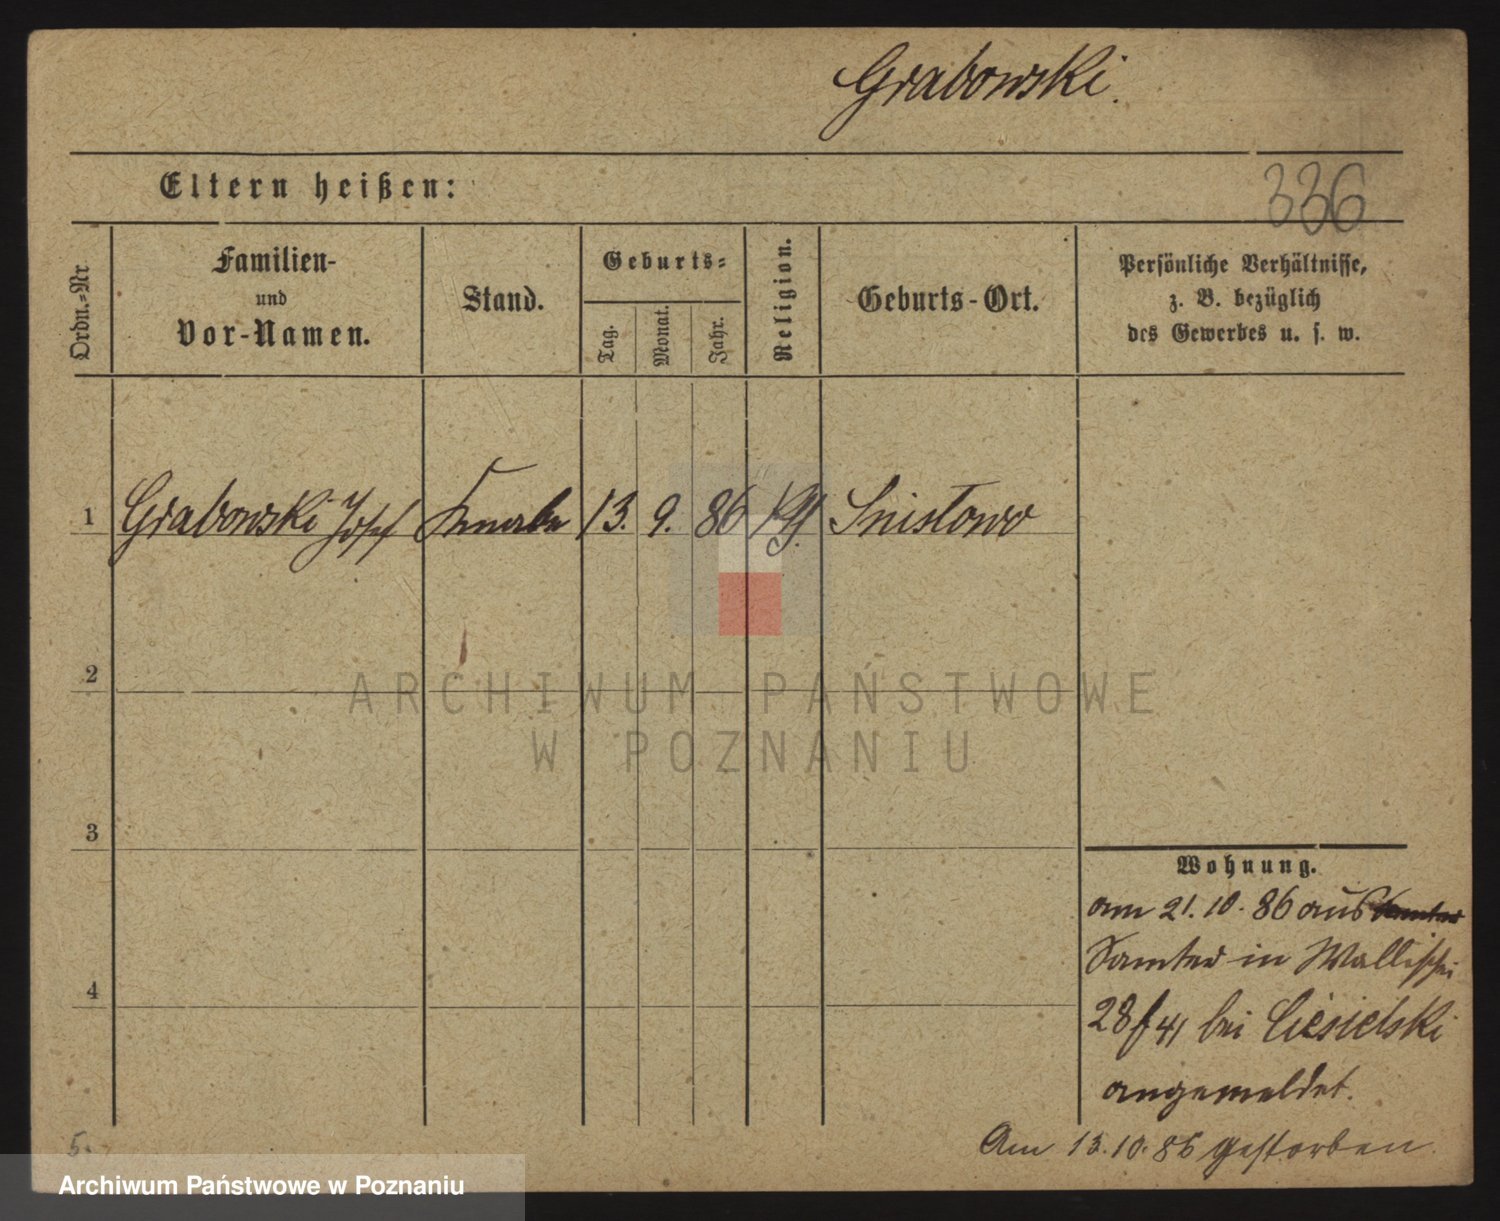 Grabowski.
Eltern heißen:
336
Ordn.=Nr
Familien-
und
Vor-Namen.
Stand.
Geburts=
Tag.
Monat.
Jahr.
Religion.
Geburts-Ort.
Persönliche Verhältnisse,
z. B. bezüglich
des Gewerbes u. s. w.
1 Grabowski Josef Knabe 13. 9. 86 Snisłowo
2
3
4
Wohnung.
am 21. 10. 86 aus Samter
Samter in Wallischei
28/41 bei Ciesielski
angemeldet.
Am 13. 10. 86 gestorben
5.
ARCHIWUM PAŃSTWOWE
W POZNANIU
Archiwum Państwowe w Poznaniu